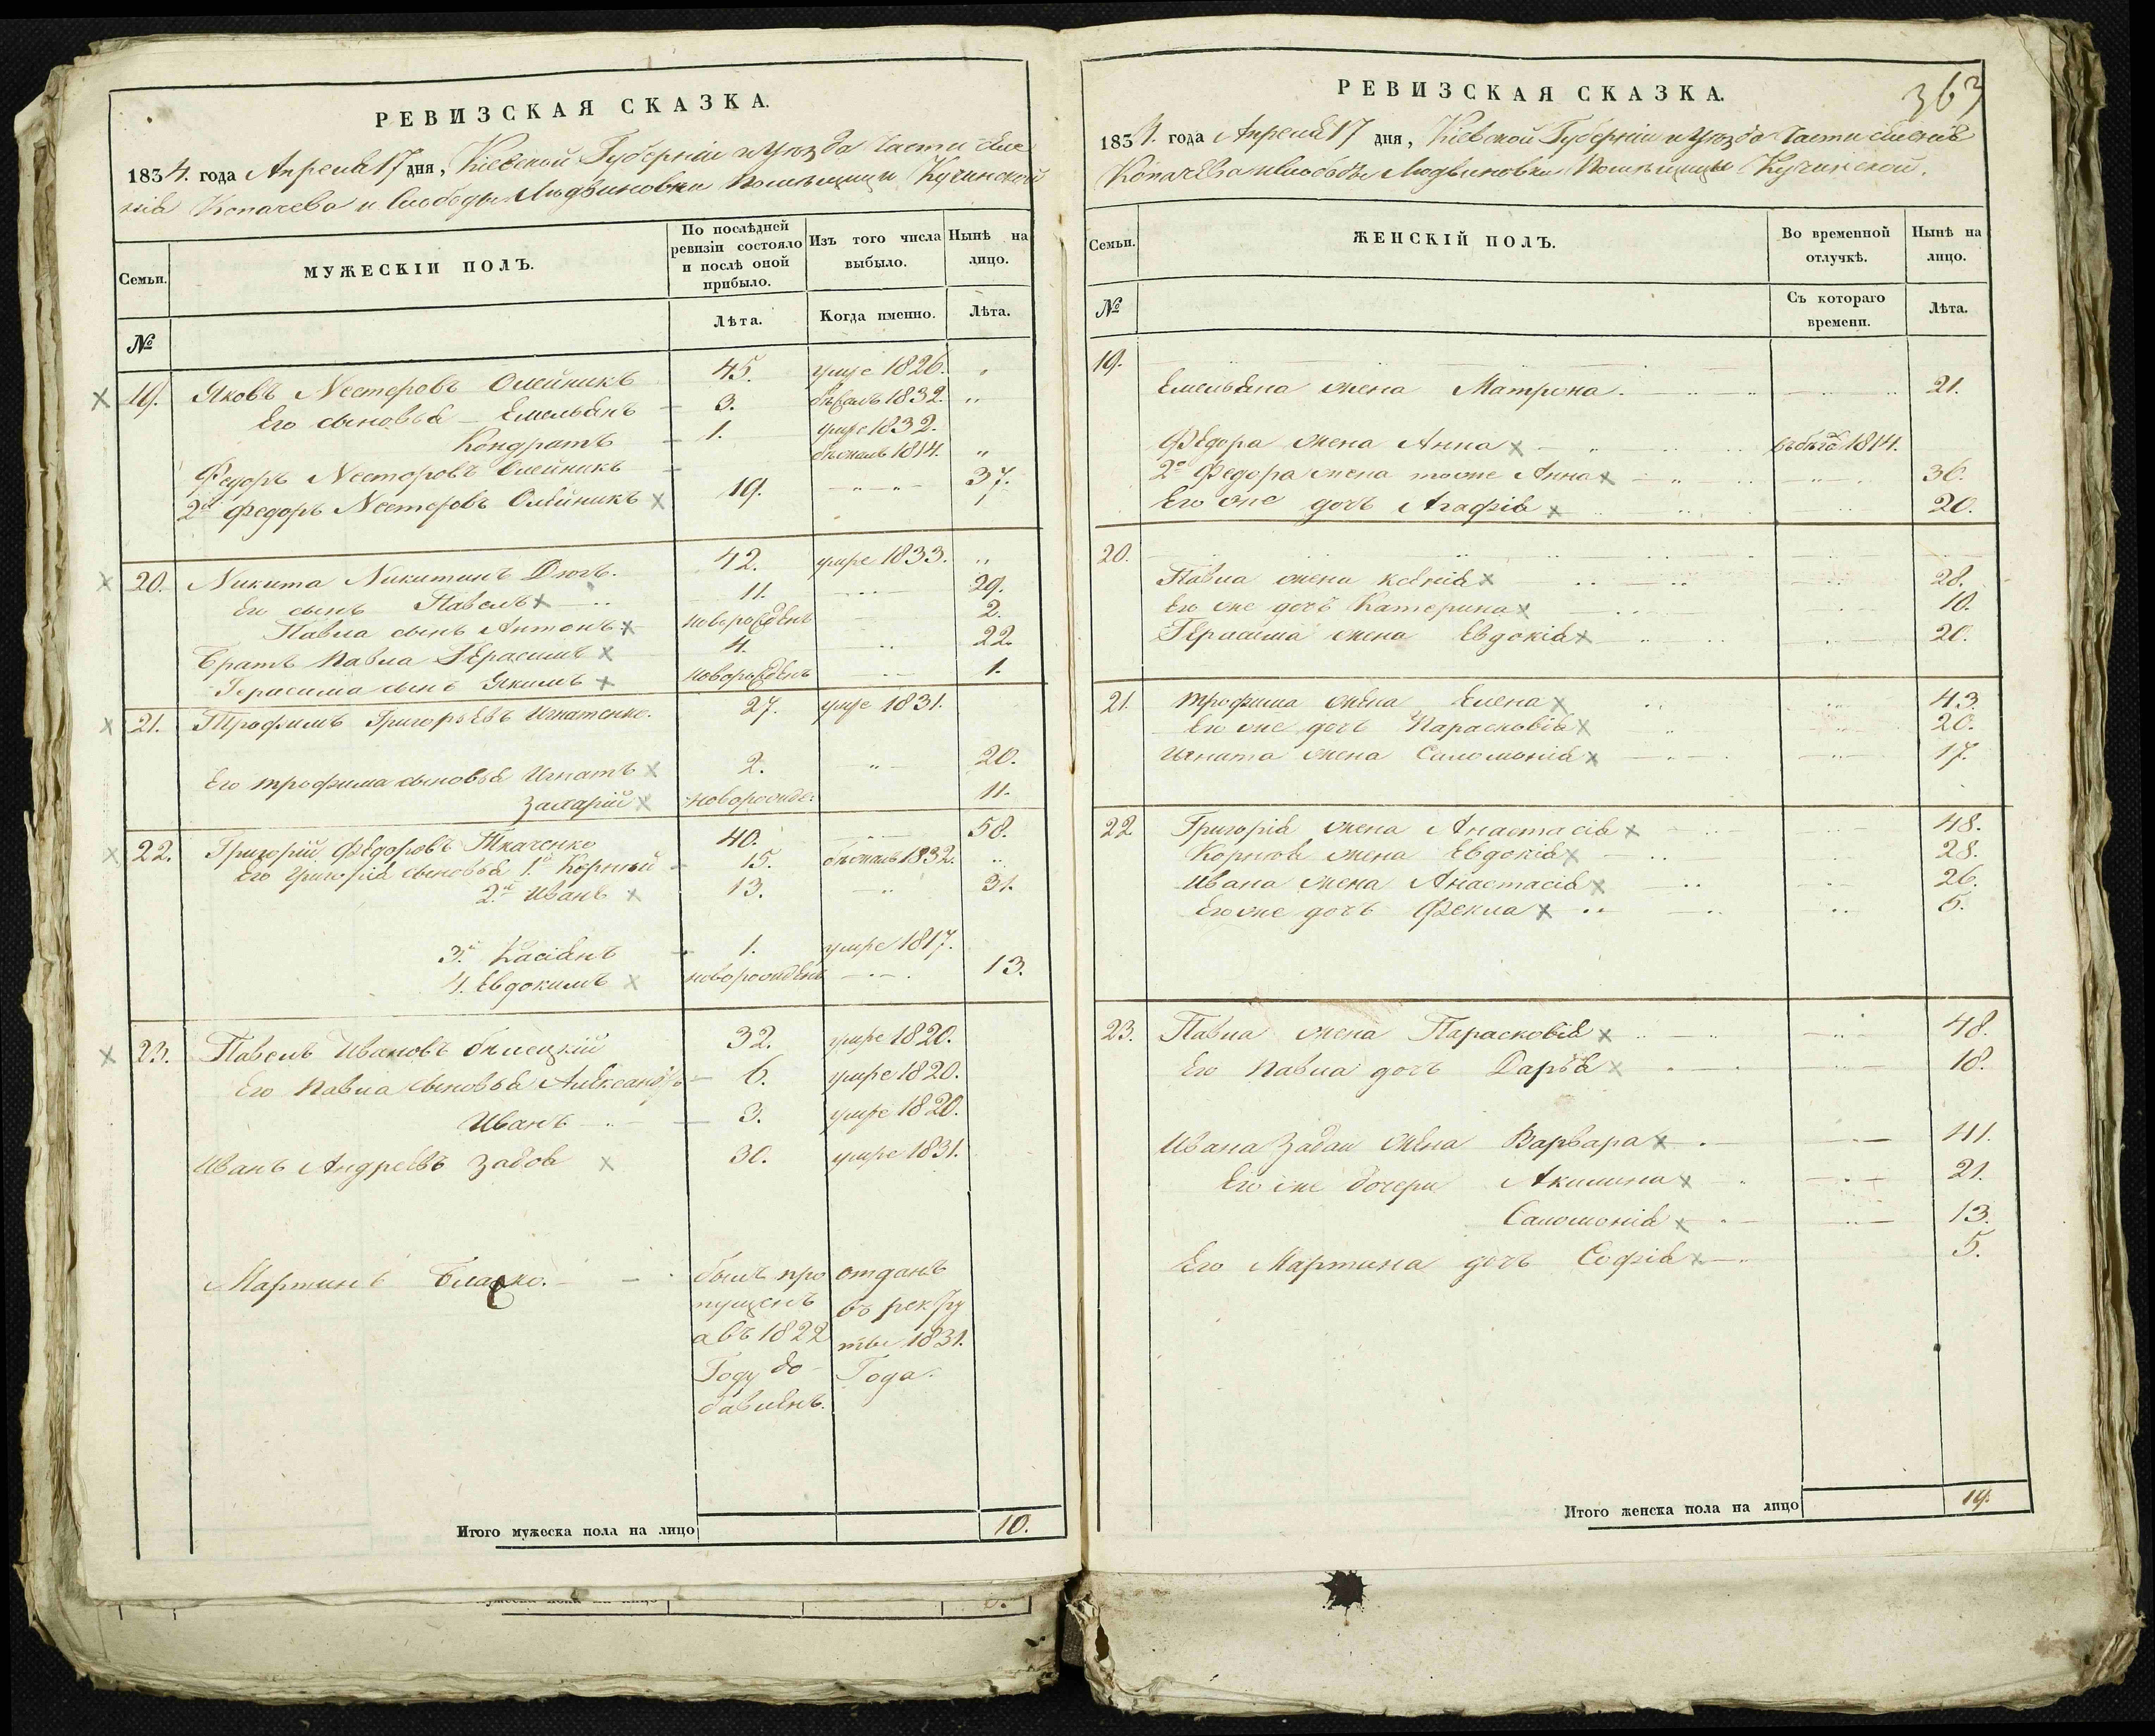 РЕВИЗСКАЯ СКАЗКА.
1834. года Апреля 17 дня, Кіевской Губерніи и Уезда Части Селе
нія Копачева и Слободы Людвиновки Помѣщицы Кучинской
Семьи.
МУЖЕСКІЙ ПОЛЪ.
По послѣдней ревизіи состояло и послѣ оной прибыло.
Изъ того числа выбыло.
Нынѣ на лицо.
№
Лѣта.
Когда именно.
Лѣта.
19. Яковъ Нестеровъ Олейникъ 45. умре 1826. „
Его сыновья Емельянъ 3. бежалъ 1832. „
Кондратъ 1. умре 1832.
Федоръ Нестеровъ Олейникъ бежалъ 1814. „
2й Федоръ Нестеровъ Олейникъ 19. 37.
20. Никита Никитинъ Дюгъ. 42. умре 1833. „
Его сынъ Павелъ 11. 29.
Павла сынъ Антонъ новорожденъ 2.
Братъ Павла Герасимъ 4. 22.
Герасима сынъ Якимъ новорожденъ 1.
21. Трофимъ Григорьевъ Игнатенко. 27. умре 1831.
Его трофима сыновья Игнатъ 2. 20.
Захарій новорожде: 11.
22. Григорій Федоровъ Ткаченко 40. 58.
Его Григорія сыновья 1й Корній 15. бежалъ 1832. „
2й Иванъ 13. 31.
3й Касіянъ 1. умре 1817.
4. Евдокимъ новорожденъ 13.
23. Павелъ Ивановъ бѣлецкій 32. умре 1820.
Его Павла сыновья Александръ 6. умре 1820.
Иванъ 3. умре 1820.
Иванъ Андреевъ Задоя 30. умре 1831.
Мартинъ былъ про отданъ
пущенъ въ рекру
а въ 1822 ты 1831.
Году до Года.
бавленъ.
Итого мужеска пола на лицо 10.
РЕВИЗСКАЯ СКАЗКА.
363
1834. года Апреля 17 дня, Кіевской Губерніи и Уезда Части селенія
Копачева и Слободы Людвиновки Помѣщицы Кучинской.
Семьи.
ЖЕНСКІЙ ПОЛЪ.
Во временной отлучкѣ.
Нынѣ на лицо.
№
Съ котораго времени.
Лѣта.
19.
Емельяна жена Матрона. 21.
Федора жена Анна въ бегах 1814.
2й Федора жена тоже Анна 36.
Его же дочь Агафія 20.
20.
Павла жена Ксенія 28.
Его же дочь Катерина 10.
Герасима жена Евдокія 20.
21. Трофима жена Елена 43.
Его же дочь Парасковія 20.
Игната жена Саломонія 17.
22. Григорія жена Анастасія 48.
Корнія жена Евдокія 28.
Ивана жена Анастасія 26.
Его же дочь Фекла 5.
23. Павла жена Парасковія 48.
Его Павла дочь Дарья 18.
Ивана Задои жена Варвара 41.
Его же дочери Акилина 21.
Саломонія 13.
Его Мартина дочь Софія 5.
Итого женска пола на лицо 19.